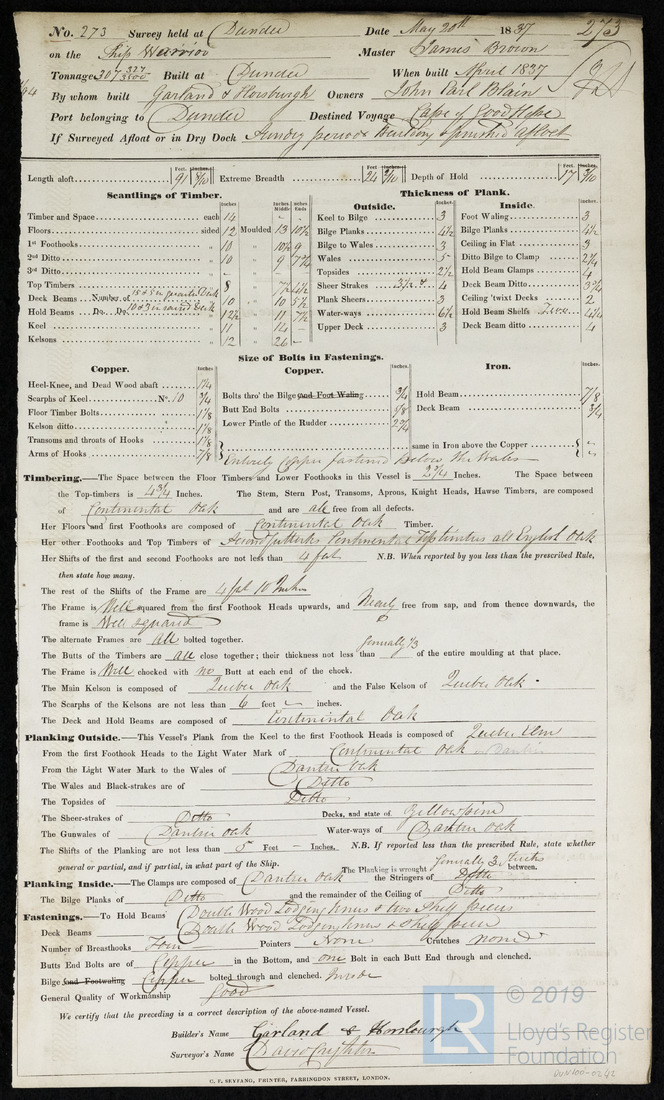 No. 273 Survey held at Dundee Date May 20th 1837 273
on the Ship Warrior Master James Brown
Tonnage 307 Built at Dundee When built April 1837
By whom built Garland & Horsburgh Owners John Earl Blain
Port belonging to Dundee Destined Voyage Cape of Good Hope
If Surveyed Afloat or in Dry Dock Sundry periods Building & finished afloat
Length aloft 91 9/10 Extreme Breadth 24 Depth of Hold 17
Feet. Inches. Feet. Inches. Feet. Inches.
Scantlings of Timber. Thickness of Plank.
Inches Inches Middle Inches Ends Outside. Inches. Inside. Inches.
Timber and Space each 14 Keel to Bilge 3 Foot Waling 3
Floors sided 12 Moulded 13 10½ Bilge Planks 4½ Bilge Planks 4½
1st Foothooks " 10 " 10½ 9 Bilge to Wales 3 Ceiling in Flat 3
2nd Ditto " 10 " 9 7¾ Wales 5 Ditto Bilge to Clamp 2¼
3rd Ditto " - " Topsides 2½ Hold Beam Clamps 4
Top Timbers " 8 " 7½ 4½ Sheer Strakes 3½ & 4 Deck Beam Ditto 3¾
Deck Beams Number of 15 & 5 in quarter Deck " 10 " 10 5½ Plank Sheers 3 Ceiling 'twixt Decks 2
Hold Beams Do. Do. " 12½ " 11 7½ Water-ways 6½ Hold Beam Shelfs 4¼
Keel " 11 " 14 - Upper Deck 3 Deck Beam ditto 4
Kelsons " 12 " 26 -
Size of Bolts in Fastenings.
Copper. Inches Copper. Inches. Iron. Inches
Heel-Knee, and Dead Wood abaft 1¼
Scarphs of Keel No. 10 ¾ Bolts thro' the Bilge and Foot Waling ¾ Hold Beam 7/8
Floor Timber Bolts 1⅛ Butt End Bolts 5/8 Deck Beam ¾
Kelson ditto 1⅛ Lower Pintle of the Rudder 2¾
Transoms and throats of Hooks 1⅛ same in Iron above the Copper "
Arms of Hooks 7/8 Entirely Copper fastened below the Wales "
Timbering.—The Space between the Floor Timbers and Lower Foothooks in this Vessel is 2¾ Inches. The Space between
the Top-timbers is 4¾ Inches. The Stem, Stern Post, Transoms, Aprons, Knight Heads, Hawse Timbers, are composed
of Continental Oak and are all free from all defects.
Her Floors and first Foothooks are composed of Continental Oak Timber.
Her other Foothooks and Top Timbers of Second futtocks Continental Top timbers all English Oak
Her Shifts of the first and second Foothooks are not less than 4 feet N.B. When reported by you less than the prescribed Rule,
then state how many.
The rest of the Shifts of the Frame are 4 feet 10 Inches
The Frame is Well squared from the first Foothook Heads upwards, and Nearly free from sap, and from thence downwards, the
frame is Well squared
The alternate Frames are all bolted together.
The Butts of the Timbers are all close together; their thickness not less than Generally 1/3 of the entire moulding at that place.
The Frame is Well chocked with no Butt at each end of the chock.
The Main Kelson is composed of Quebec Oak and the False Kelson of Quebec Oak.
The Scarphs of the Kelsons are not less than 6 feet - inches.
The Deck and Hold Beams are composed of Continental Oak
Planking Outside.—This Vessel's Plank from the Keel to the first Foothook Heads is composed of Quebec Elm
From the first Foothook Heads to the Light Water Mark of Continental Oak
From the Light Water Mark to the Wales of Dantzic Oak
The Wales and Black-strakes are of Ditto
The Topsides of Ditto
The Sheer-strakes of Ditto Decks, and state of. Yellow pine
The Gunwales of Dantzic Oak Water-ways of Dantzic Oak
The Shifts of the Planking are not less than 5 Feet - Inches. N.B. If reported less than the prescribed Rule, state whether
general or partial, and if partial, in what part of the Ship. The Planking is wrought Generally 3 strakes between.
Planking Inside.—The Clamps are composed of Dantzic Oak the Stringers of Ditto
The Bilge Planks of Ditto and the remainder of the Ceiling of Ditto
Fastenings.—To Hold Beams Double Wood Lodging knees & two Shelf pieces
Deck Beams Double Wood Lodging knees & Shelf piece
Number of Breasthooks Four Pointers None Crutches none
Butts End Bolts are of Copper in the Bottom, and one Bolt in each Butt End through and clenched.
Bilge and Footwaling Copper bolted through and clenched. Inside
General Quality of Workmanship Good
We certify that the preceding is a correct description of the above-named Vessel.
Builder's Name Garland & Horsburgh
Surveyor's Name David Crighton
C. F. SEYFANG, PRINTER, FARRINGDON STREET, LONDON.
LR © 2019
Lloyd's Register
Foundation
DUN100-0242